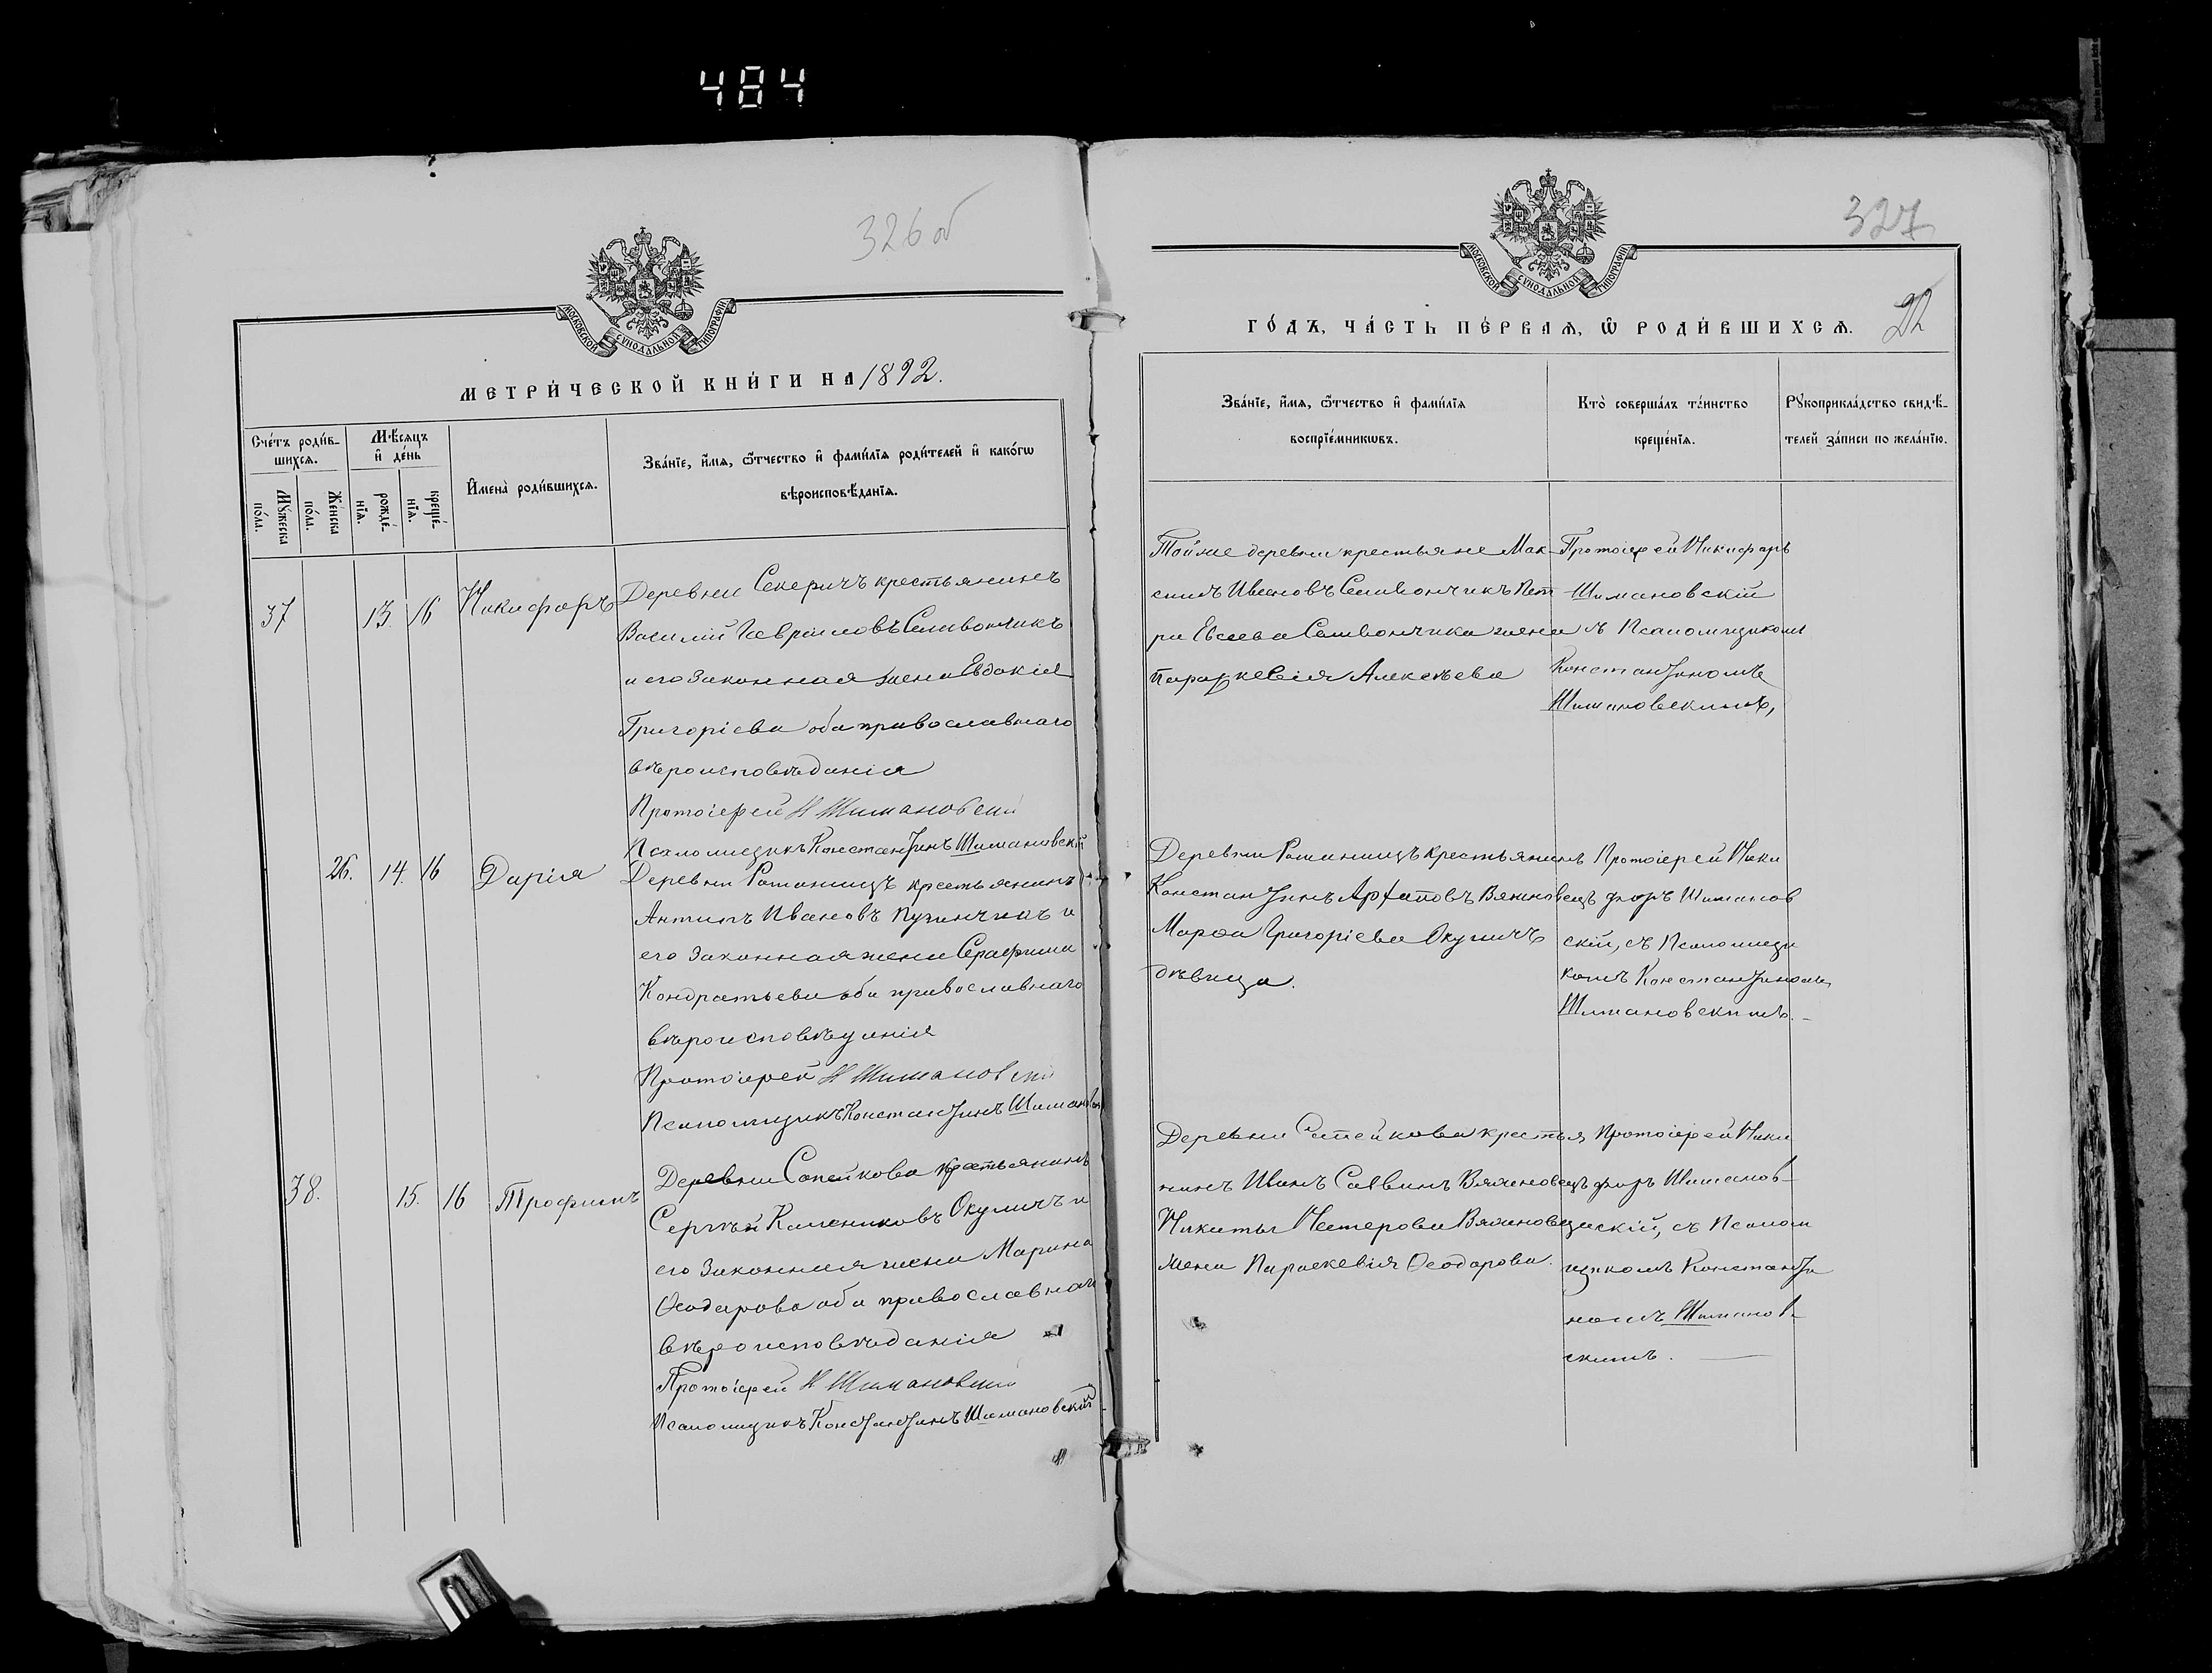 484
326об
МОСКОВСКОЙ СУНОДАЛЬНОЙ ТИПОГРАФІИ
МЕТРИ́ЧЕСКОЙ КНИ́ГИ НА 1892.
Сче́тъ роди́в-
шихсѧ.
Мѣ́сѧцъ
и҆ де́нь
И҆мена̀ роди́вшихсѧ.
Зва́нїе, и҆́мѧ, ѻ҆́тчество и҆ фами́лїѧ роди́телей и҆ како́гѡ
вѣроисповѣ́данїѧ.
Мꙋ́жеска
по́ла.
Же́нска
по́ла.
рожде́-
нїѧ.
креще́-
нїѧ.
37
13.
16
Никифоръ
Деревни Секеричъ крестьянинъ
Василій Гавріиловъ Селивончикъ
и его законная жена Евдокія
Григоріева оба православнаго
вѣроисповѣданія
Протоіерей Н Шимановскій
Псаломщикъ Константинъ Шимановскій
26.
14.
16
Дарія
Деревни Ратаницъ крестьянинъ
Антипъ Ивановъ Пузинчикъ и
его законная жена Серафима
Кондратьева оба православнаго
вѣроисповѣданія
Протоіерей Н Шимановскій
Псаломщикъ Константинъ Шимановскій
38.
15.
16
Трофимъ
Деревни Сопейкова крестьянинъ
Сергѣй Окуличъ и
его законная жена Марина
Ѳеодорова оба православнаго
вѣроисповѣданія
Протоіерей Н Шимановскій
Псаломщикъ Константинъ Шимановскій
МОСКОВСКОЙ СУНОДАЛЬНОЙ ТИПОГРАФІИ
327
22
ГО́ДЪ, ЧА́СТЬ ПЕ́РВАѦ, Ѽ РОДИ́ВШИХСѦ.
Зва́нїе, и҆́мѧ, ѻ҆́тчество и҆ фами́лїѧ
воспрїе́мникѡвъ.
Кто̀ соверша́лъ та́инство
креще́нїѧ.
Рꙋкоприкла́дство свидѣ́-
телей за́писи по жела́нїю.
Тойже деревни крестьяне Мак-
симъ Ивановъ Селивончикъ Пет
ра Евсеева Селивончика жена
Параскевія Алексѣева
Протоіерей Никифоръ
Шимановскій
съ Псаломщикомъ
Константиномъ
Шимановскимъ,
Деревни Ратаницъ крестьянинъ
Константинъ Вяжновецъ
Марѳа Григоріева Окуличъ
дѣвица.
Протоіерей Ники
форъ Шиманов
скій, съ Псаломщи
комъ Константиномъ
Шимановскимъ. -
Деревни Сопейкова крестья
нинъ Иванъ Саввинъ Вяжновецъ
Никиты Нестерова Вяжновца
жена Параскевія Ѳеодорова.
Протоіерей Ники
форъ Шиманов-
скій, съ Псалом
щикомъ Константи
номъ Шиманов-
скимъ. —